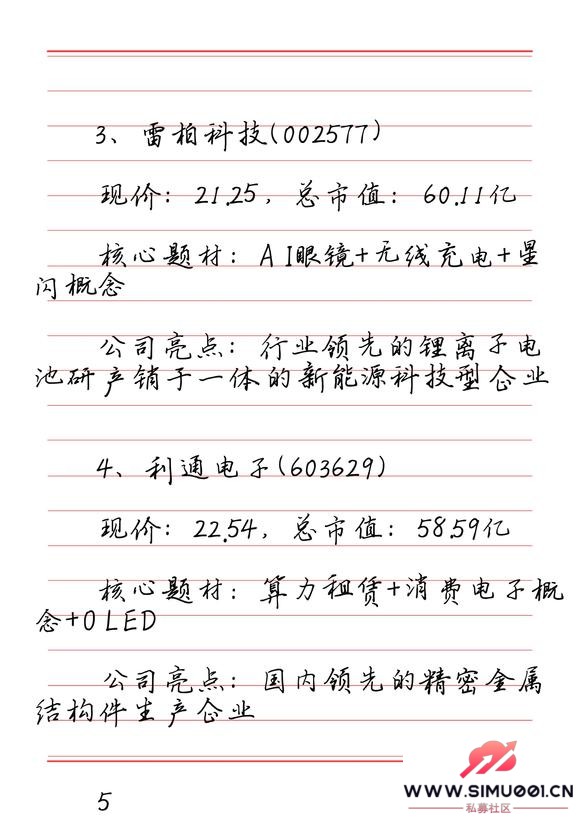 3、雷柏科技(002577)
现价：21.25，总市值：60.11亿
核心题材：AI眼镜+无线充电+星
闪概念
公司亮点：行业领先的锂离子电
池研产销于一体的新能源科技型企业
4、利通电子(603629)
现价：22.54，总市值：58.59亿
核心题材：算力租赁+消费电子概
念+OLED
公司亮点：国内领先的精密金属
结构件生产企业
5
WWW.SIMU001.CN
私募社区